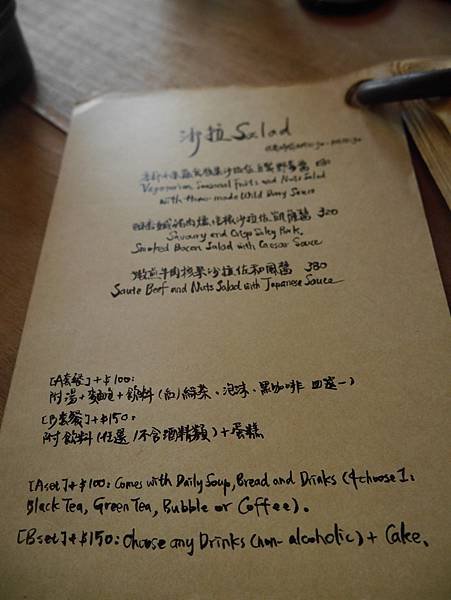 沙拉 Salad
Vegetarian Seasonal Fruits and Nuts Salad
with Home-made Wild Berry Sauce
沙拉佐凱薩醬 320
Savoury and Crisp Salty Pork,
Smoked Bacon Salad with Caesar Sauce
嫩煎牛肉核果沙拉佐和風醬 380
Saute Beef and Nuts Salad with Japanese Sauce
[A套餐]+$100:
附湯+麵包+飲料(紅、綠茶、泡沫、黑咖啡 四選一)
[B套餐]+$150:
附飲料(任選/不含酒精類)+蛋糕
[Aset]+$100: Comes with Daily Soup, Bread and Drinks (4 choose 1:
Black Tea, Green Tea, Bubble or Coffee).
[Bset]+$150: Choose any Drinks (non-alcoholic) + Cake.